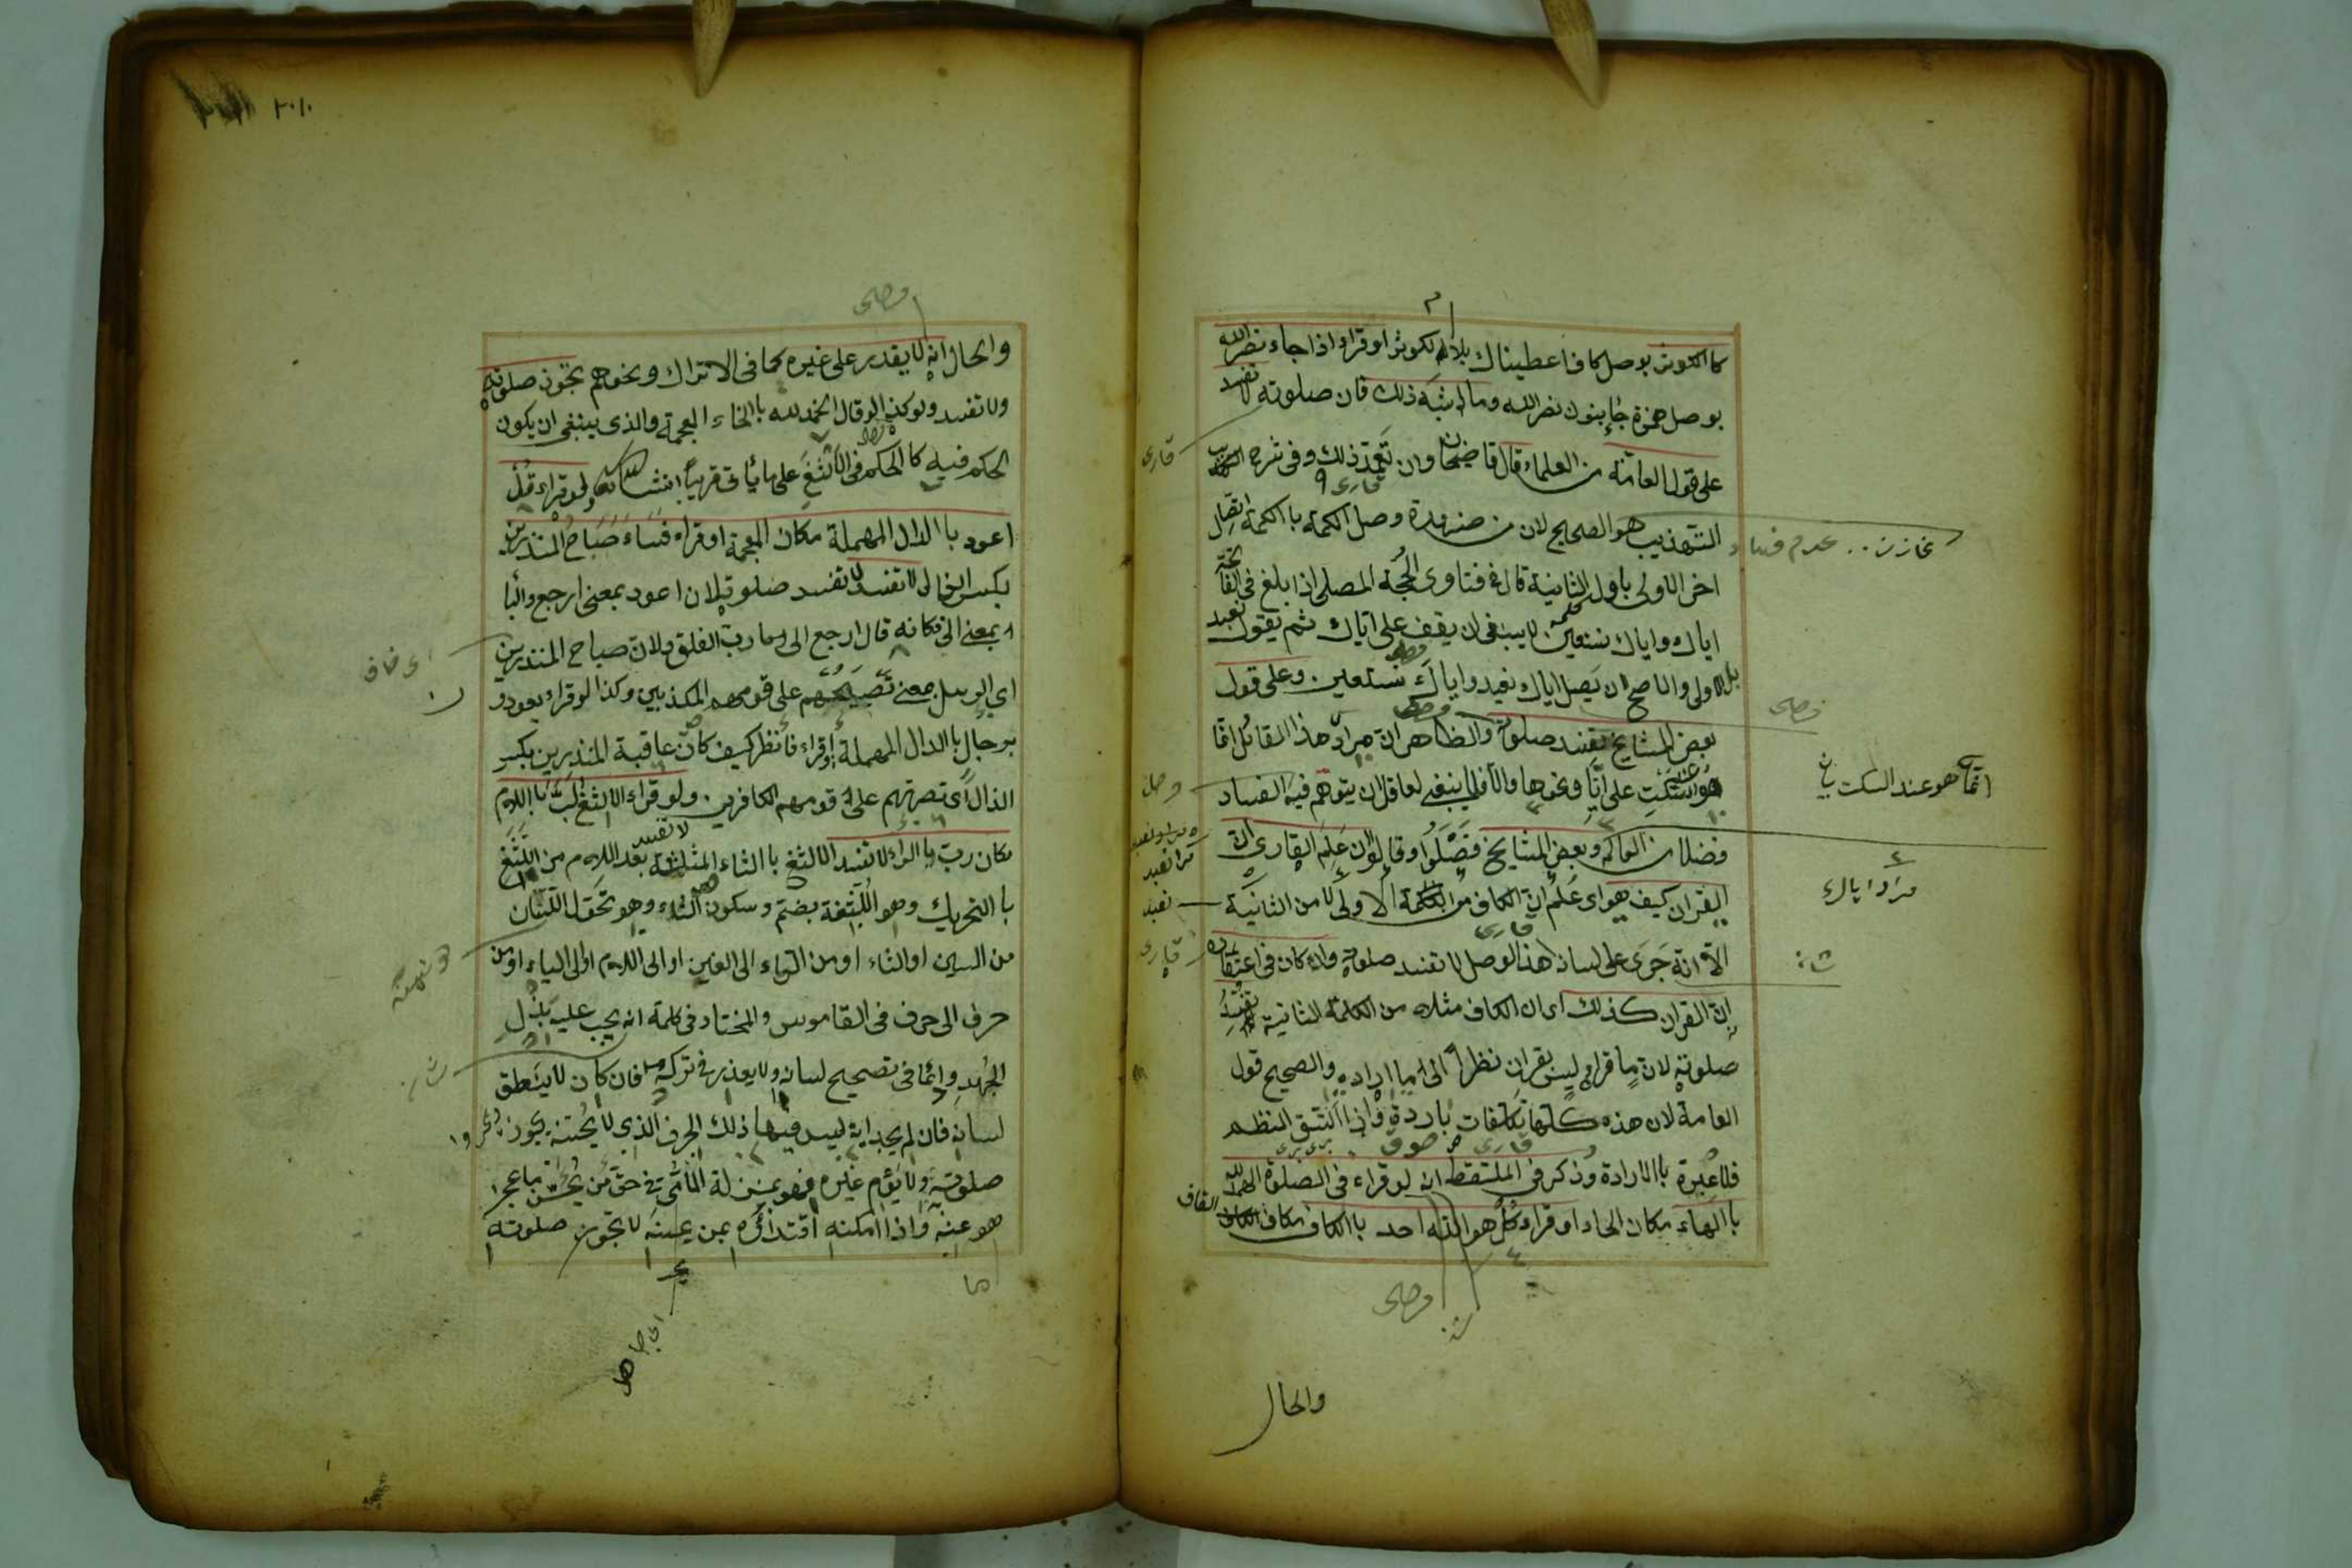 كا الكوثر بوصل كاف اعطيناك بلام الكوثر او قراء اذا جاء نصر الله
بوصل همزة جاء بنون نصر الله وما اشبه ذلك فان صلوته لا تفسد
على قول العامة من العلماء قال قاضيخان وان تعمد ذلك وفى شرح
التهذيب هو الصحيح لان من ضرورة وصل الكلمة با الكلمة اتصال
اخر الاولى باول الثانية قال فى فتاوى الحجة المصلى اذا بلغ فى الفاتحة
اياك واياك نستعين لا ينبغى ان يقف على اياك ثم يقول نعبد
بل الاولى والاصح ان يصل اياك نعبد واياك نستعين وعلى قول
بعض المشايخ تفسد صلوته والظاهر ان مراد هذا القائل انما
هو السكت على ايا ونحوها والا فلا ينبغى لعاقل ان يتوهم فيه الفساد
فضلا من العالم وبعض المشايخ فصلوا وقالوا ان علم القارى ان
القران كيف هو اى علم ان الكاف من الكلمة الاولى لا من الثانية
الا انه جرى على لسانه هذا الوصل لا تفسد صلوته وان كان فى اعتقاده
ان القران كذلك اى ان الكاف مثلا من الكلمة الثانية تفسد
صلوته لان ما قراه ليس بقران نظرا الى ما اراده والصحيح قول
العامة لان هذه كلها تكلفات باردة واذا اتسق النظم
فلا عبرة با الارادة وذكر فى الملتقط ان لو قراء فى الصلوة الهمد لله
با الهاء مكان الحاء او قراء كل هو الله احد با الكاف مكان القاف
والحال
والحال انه لا يقدر على غيره كما فى الاتراك ونحوهم تجوز صلوته
ولا تفسد وكذا لو قال الخمد لله با الخاء المعجمة والذى ينبغى ان يكون
الحكم فيه كا الحكم فى الالثغ على ما يأتى قريبا انشاء الله ولو قراء قل
اعود با الدال المهملة مكان المعجمة او قراء فساء صباح المنذرين
بكسر الذال لا تفسد صلوته لان اعود بمعنى ارجع والبا
بمعنى الى فكانه قال ارجع الى رب الفلق ولان صباح المنذرين
اى الرسل بمعنى تصبيحهم على قومهم المكذبين وكذا لو قراء يعودو
برجال با الدال المهملة او قراء فانظر كيف كان عاقبة المنذرين بكسر
الذال اى نصرتهم على قومهم الكافرين ولو قراء الالثغ لب با اللام
مكان رب با الراء لا تفسد الالثغ با الثاء المثلثة بعد اللام من اللثغ
با التحريك وهو اللثغة بضم وسكون الثاء وهو تحول اللسان
من السين او الثاء او من الراء الى الغين او الى اللام او الى الياء او من
حرف الى حرف فى القاموس والمختار فى كلمة انه يجب عليه بذل
الجهد دائما فى تصحيح لسانه ولا يعذر فى تركه فان كان لا ينطق
لسانه فان لم يجد اية ليس فيها ذلك الحرف الذى لا يحسنه يجوز
صلوته ولا يؤم غيره فهو بمنزلة الامى فى حق من يحسن ما عجز
هو عنه واذا امكنه اقتداؤه بمن يحسنه لا تجوز صلوته